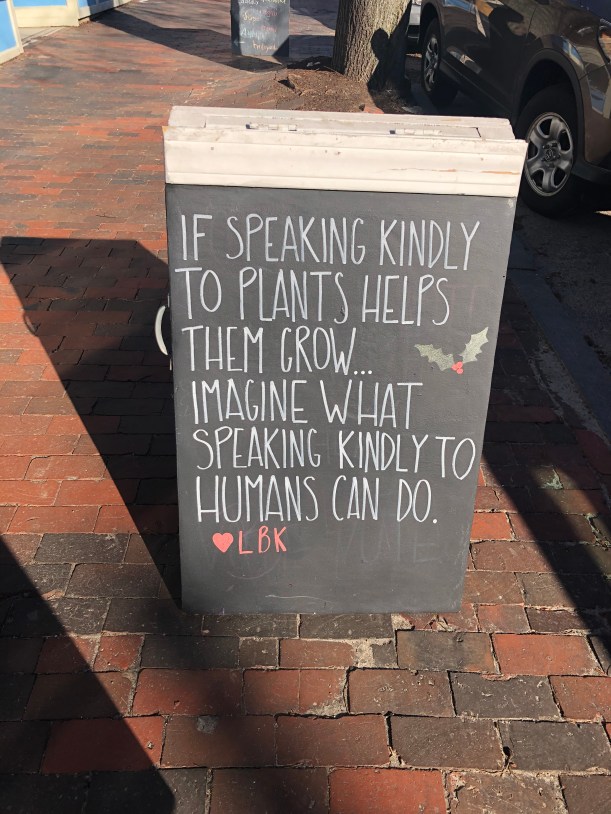 IF SPEAKING KINDLY
TO PLANTS HELPS
THEM GROW...
IMAGINE WHAT
SPEAKING KINDLY TO
HUMANS CAN DO.
♥LBK